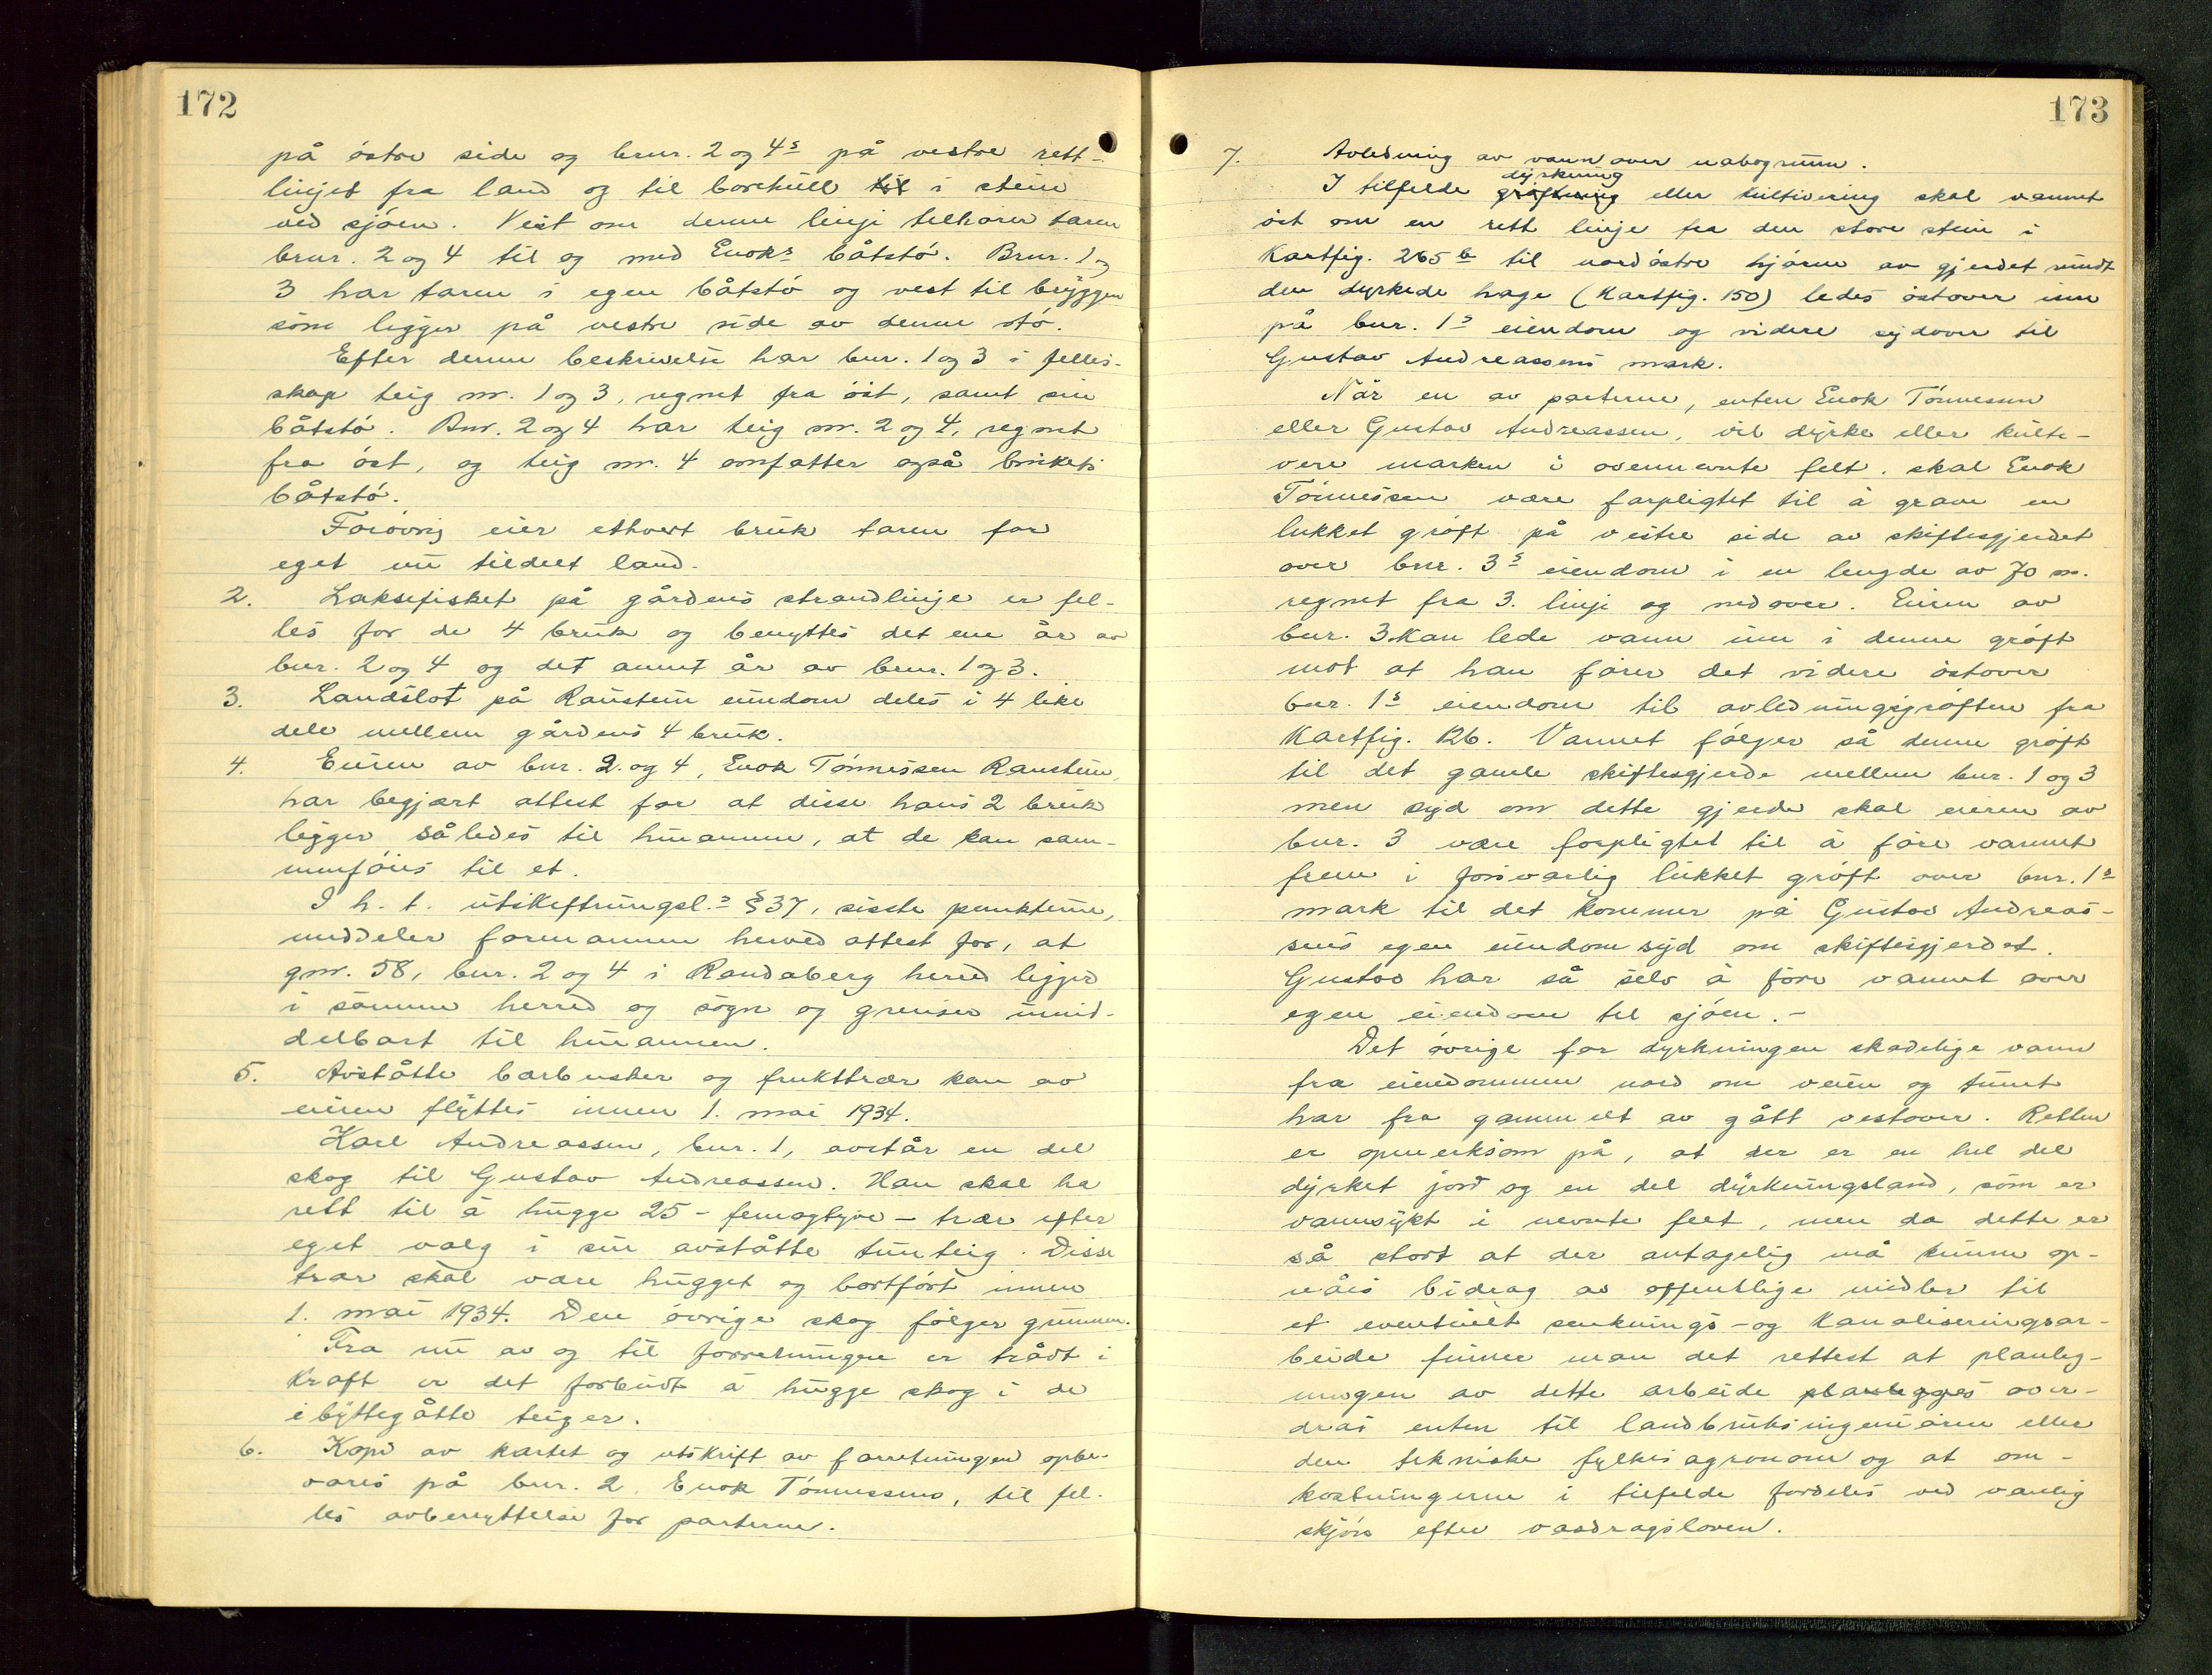 172
på östre side og brnr. 2 og 4s på vestre rett-
linjet fra land og til borehull til i stein
ved sjöen. Vest om denne linje tilhörer taren
brnr. 2 og 4 til og med Enoks båtstö. Brnr. 1 og
3 har taren i egen båtstö og vest til bryggen
som ligger på vestre side av denne stö.
Efter denne beskrivelse har bnr. 1 og 3 i felles-
skap teig nr. 1 og 3, regnet fra öst, samt sin
båtstö. Bnr. 2 og 4 har teig nr. 2 og 4, regnet
fra öst, og teig nr. 4 omfatter også brukets
båtstö.
Forövrig eier ethvert bruk taren for
eget nu tildelt land.
2. Laksefisket på gårdens strandlinje er fel-
les for de 4 bruk og benyttes det ene år av
bnr. 2 og 4 og det annet år av bnr. 1 og 3.
3. Landslot på Raustein eiendom deles i 4 like
dele mellem gårdens 4 bruk.
4. Eieren av bnr. 2. og 4, Enok Tönnessen Raustein,
har begjært attest for at disse hans 2 bruk
ligger således til hinannen, at de kan sam-
menföies til et.
I h. t. utskiftningsl.s § 37, siste punktum,
meddeler formannen herved attest for, at
gnr. 58, bnr. 2 og 4 i Randaberg herred ligger
i samme herred og sogn og grenser umid-
delbart til hinannen.
5. Avståtte bærbusker og frukttrær kan av
eieren flyttes innen 1. mai 1934.
Karl Andreassen, bnr. 1, avstår en del
skog til Gustav Andreassen. Han skal ha
rett til å hugge 25 - femogtyve - trær efter
eget valg i sin avståtte tunteig. Disse
trær skal være hugget og bortfört innen
1. mai 1934. Den övrige skog fölger grunnen.
Fra nu av og til forretningen er trådt i
kraft er det forbudt å hugge skog i de
ibyttegåtte teiger.
6. Kopi av kartet og utskrift av forretningen opbe-
vares på bnr. 2, Enok Tönnessens, til fel-
les avbenyttelse for parterne.
173
7. Avledning av vann over nabogrunn.
dyrkning
I tilfelde gröftning eller kultivering skal vannet
öst om en rett linje fra den store stein i
Kartfig. 265 b til nordöstre hjörne av gjerdet rundt
den dyrkede hage (Kartfig. 150) ledes östover inn
på bnr. 1s eiendom og videre sydover til
Gustav Andreassens mark.
Når en av parterne, enten Enok Tönnessen
eller Gustav Andreassen, vil dyrke eller kulti-
vere marken i ovennevnte felt, skal Enok
Tönnessen være forpligtet til å grave en
lukket gröft på vestre side av skiftesgjerdet
over bnr. 3s eiendom i en lengde av 70 m.
regnet fra 3. linje og nedover. Eieren av
bnr. 3 kan lede vann inn i denne gröft
mot at han förer det videre östover
bnr. 1s eiendom til avledningsgröften fra
Kartfig. 126. Vannet fölger så denne gröft
til det gamle skiftesgjerde mellem bnr. 1 og 3
men syd om dette gjerde skal eieren av
bnr. 3 være forpligtet til å före vannet
frem i forsvarlig lukket gröft over bnr. 1s
mark til det kommer på Gustav Andreas-
sens egen eiendom syd om skiftesgjerdet.
Gustav har så selv å före vannet over
egen eiendom til sjöen. -
Det övrige for dyrkningen skadelige vann
fra eiendommen nord om veien og tunet
har fra gammelt av gått vestover. Retten
er opmerksom på, at der er en hel del
dyrket jord og en del dyrkningsland, som er
vannsykt i nevnte felt, men da dette er
så stort at der antagelig må kunne op-
nåes bidrag av offentlige midler til
et eventuelt senknings- og kanaliseringsar-
beide finner man det rettest at planleg-
ningen av dette arbeide planlegges over-
dras enten til landbruksingeniören eller
den tekniske fylkesagronom og at om-
kostningerne i tilfelde fordeles ved vanlig
skjön efter vasdragsloven.